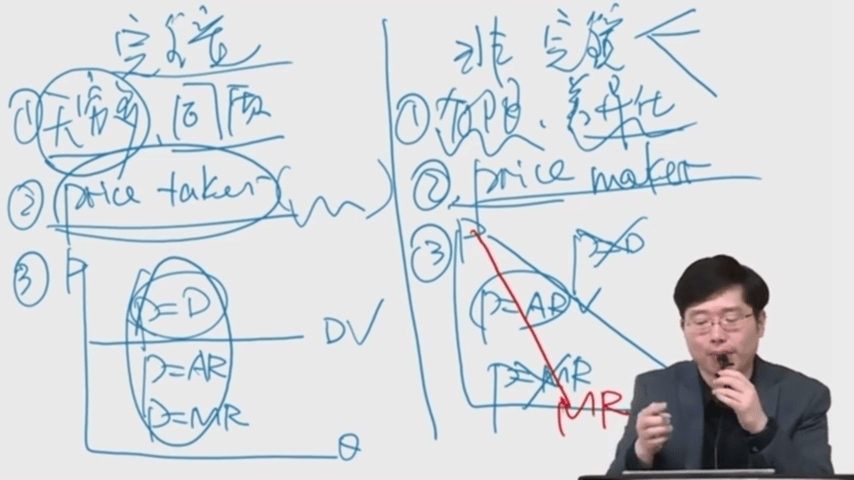 完全
① 无穷多、同质
② price taker
③ P
P=D
DV
P=AR
P=MR
Q
非完全
① 有限、差异化
② price maker
③ P
P=D
P=AR ✓
P=MR
MR